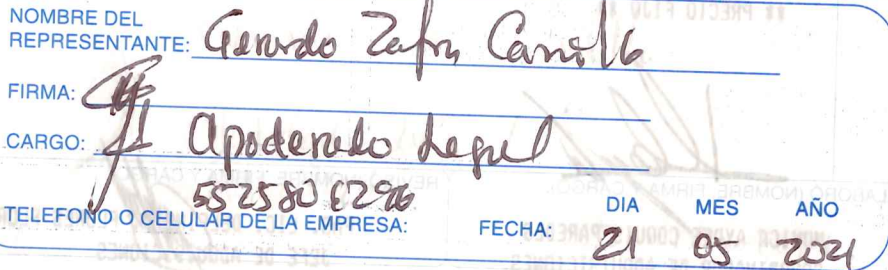 NOMBRE DEL
REPRESENTANTE: Gerardo Zafra Carrillo
FIRMA:
CARGO: Apoderado Legal
TELEFONO O CELULAR DE LA EMPRESA:
FECHA: DIA MES AÑO
21 05 2021